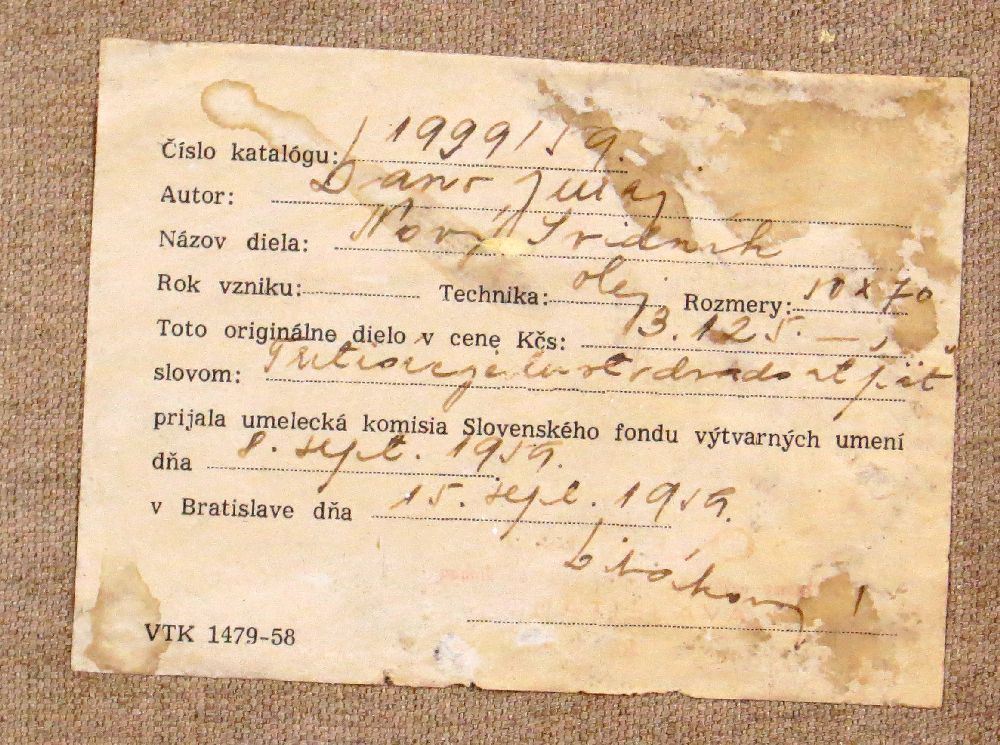 Číslo katalógu: 1999/59.
Autor: Juraj
Názov diela: Nový Svidník
Rok vzniku: Technika: olej Rozmery: x 70
Toto originálne dielo v cene Kčs: 3.125.—,
slovom:
prijala umelecká komisia Slovenského fondu výtvarných umení
dňa 8. sept. 1959.
v Bratislave dňa 15. sept. 1959.
VTK 1479-58